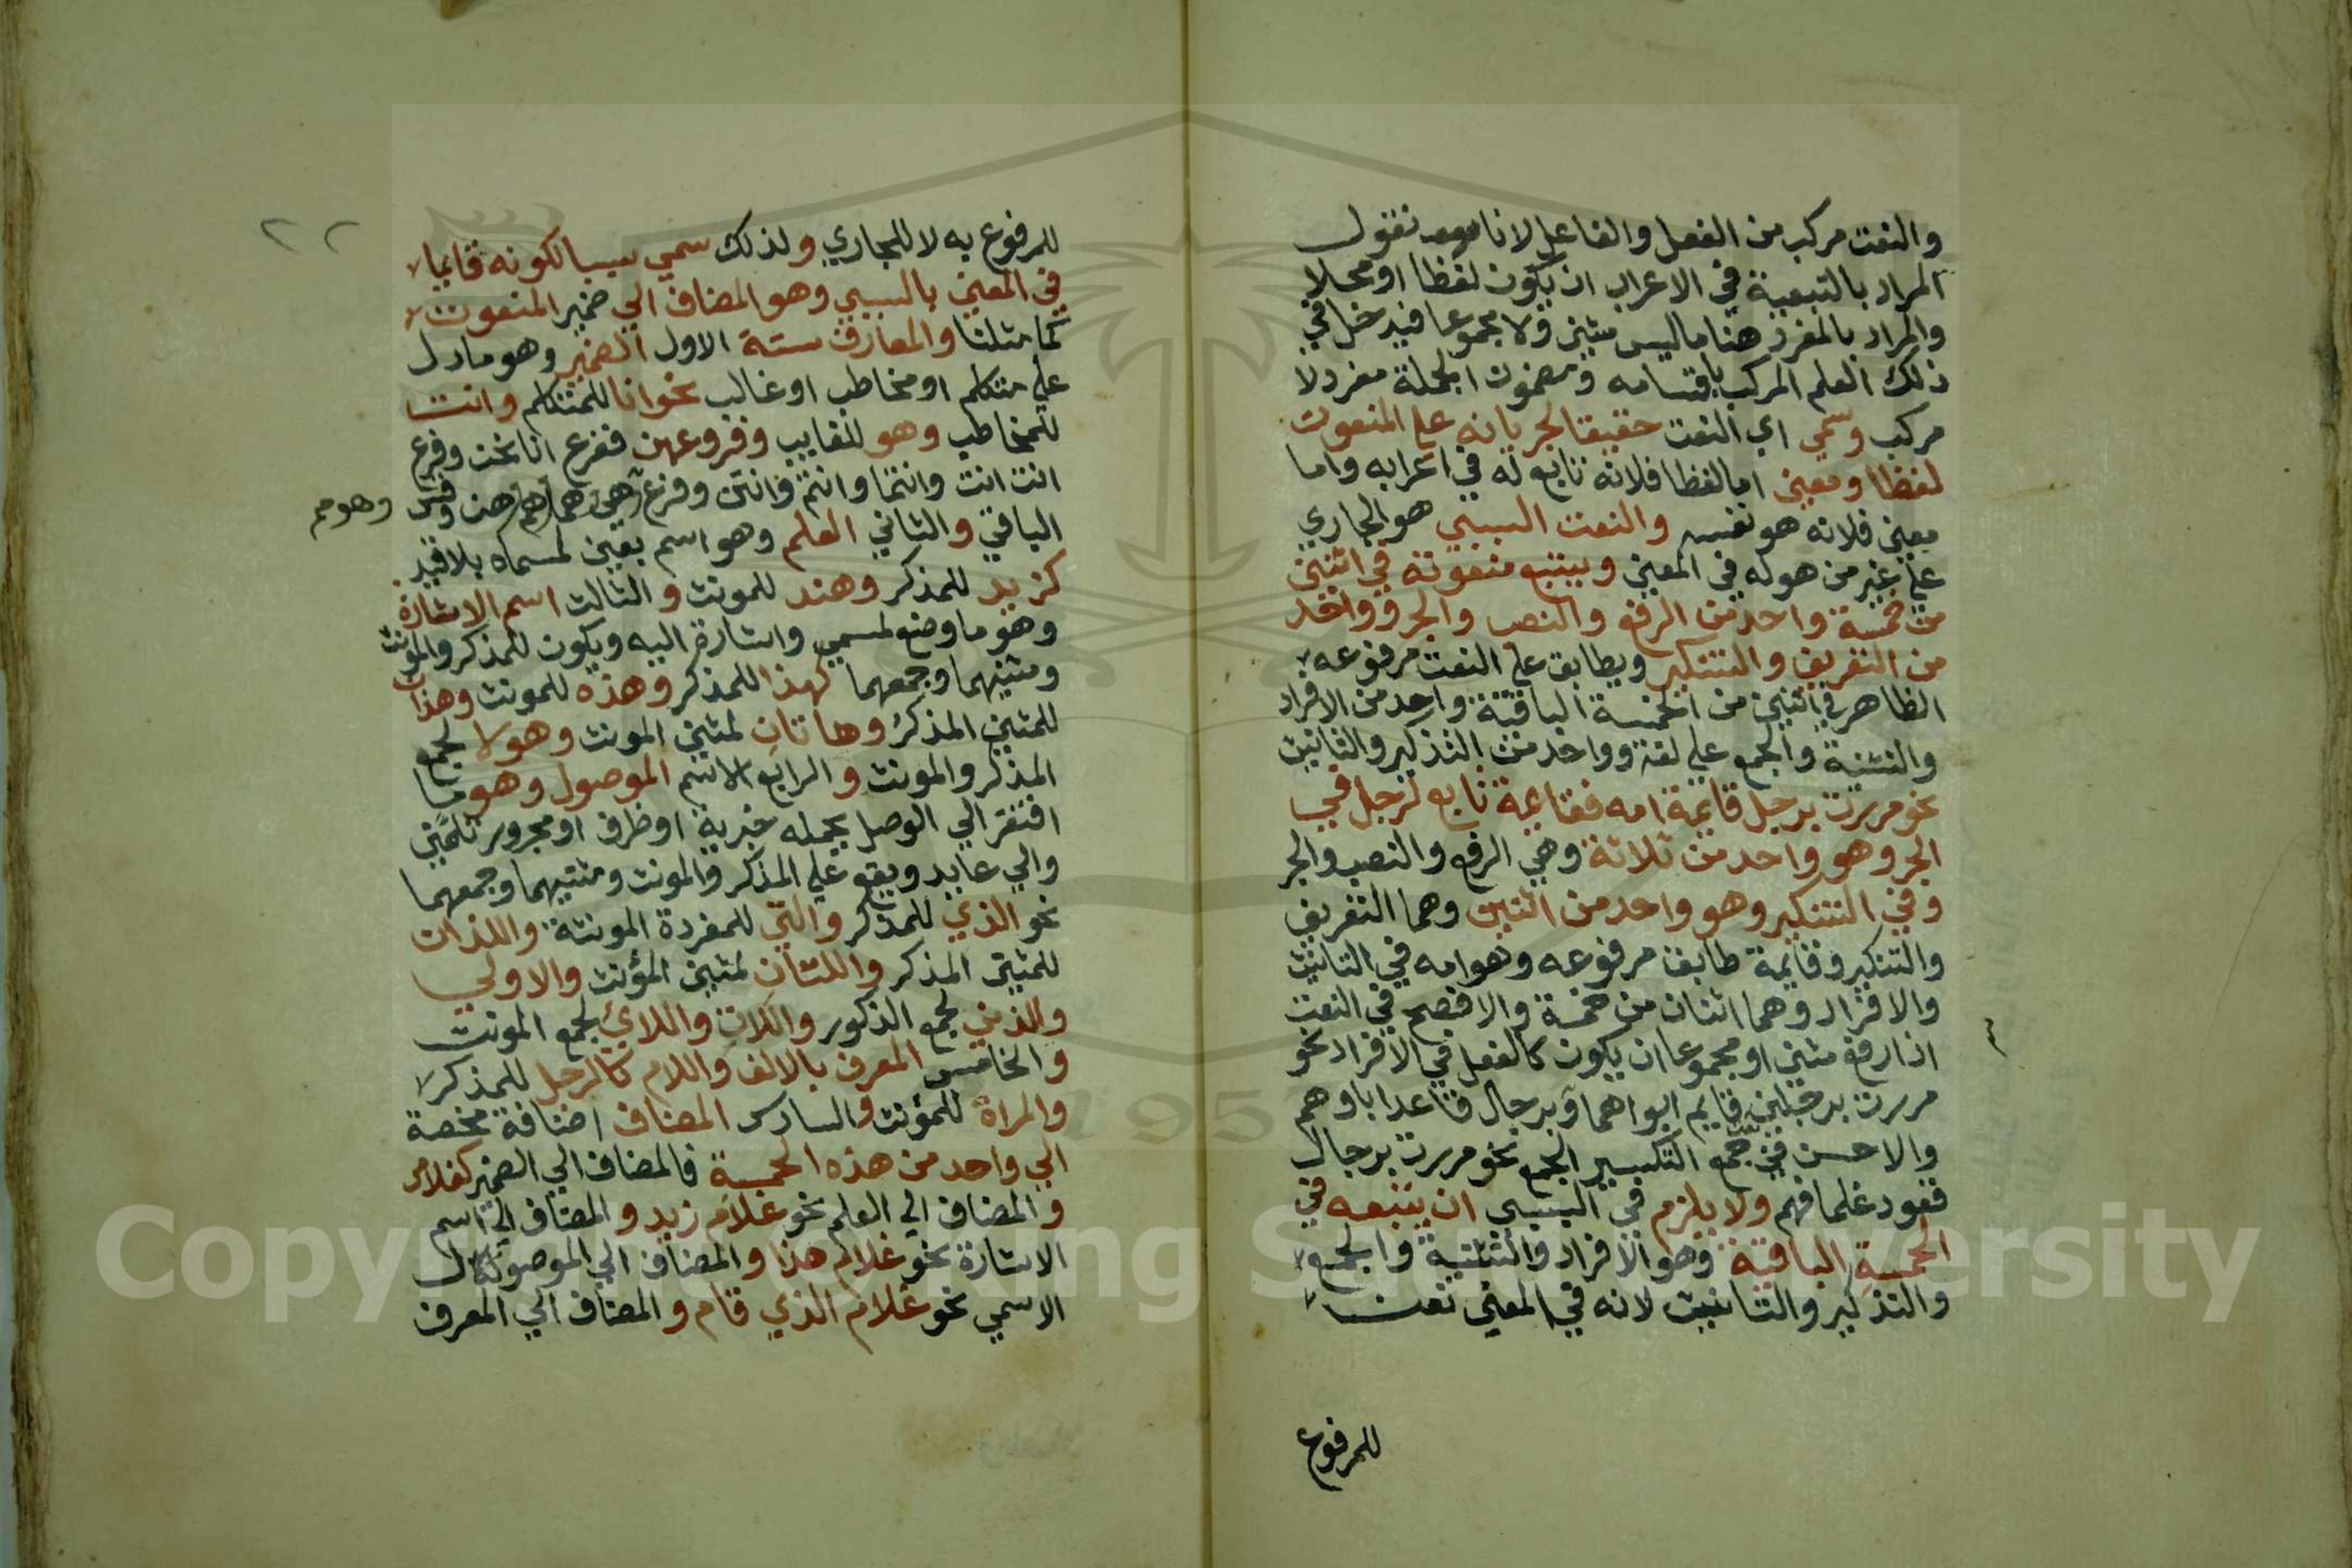 والنعت مركب من الفعل والفاعل لانا نقول
المراد بالتبعية في الاعراب ان يكون لفظا او محلا
والمراد بالمفرد هنا ما ليس مثني ولا مجموعا فيدخل في
ذلك العلم المركب باقسامه ومضمون الجملة مفرد لا
مركب وسمي اي النعت حقيقا لجريانه علي المنعوت
لفظا ومعني اما لفظا فلانه تابع له في اعرابه واما
معني فلانه هو نفسه والنعت السببي هو الجاري
علي غير من هو له في المعني ويتبع منعوته في اثنين
من خمسة واحد من الرفع والنصب والجر وواحد
من التعريف والتنكير ويطابق علي النعت مرفوعه
الظاهر في اثنين من الخمسة الباقية واحد من الافراد
والتثنية والجمع علي لغة وواحد من التذكير والتانيث
نحو مررت برجل قايمة امه فقايمة تابع لرجل في
الجر وهو واحد من ثلاثة وهي الرفع والنصب والجر
وفي التنكير وهو واحد من اثنين وهما التعريف
والتنكير وقايمة طابق مرفوعه وهو امه في التانيث
والافراد وهما اثنان من خمسة والافصح في النعت
اذا رفع مثني او مجموعا ان يكون كالفعل في الافراد نحو
مررت برجلين قايم ابواهما وبرجال قاعد اباوهم
والاحسن في جمع التكسير الجمع نحو مررت برجال
قعود غلمانهم ولا يلزم في السببي ان يتبعه في
الخمسة الباقية وهو الافراد والتثنية والجمع
والتذكير والتانيث لانه في المعني نعت
للمرفوع
٢٢
للمرفوع به لا للجاري ولذلك سمي سببيا لكونه قايما
في المعني بالسببي وهو المضاف الي ضمير المنعوت
كما مثلنا والمعارف ستة الاول الضمير وهو ما دل
علي متكلم او مخاطب او غائب نحو انا للمتكلم وانت
للمخاطب وهو للغايب وفروعهن ففرع انا نحن وفرع
انت انت وانتما وانتم وانتن وفرع هي هما هم هن وقس وهو
الباقي والثاني العلم وهو اسم يعين لمسماه بلا قيد
كزيد للمذكر وهند للمونث والثالث اسم الاشارة
وهو ما وضع لمسمي واشارة اليه ويكون للمذكر والمونث
ومثنيهما وجمعهما كهذا للمذكر وهذه للمونث وهذان
للمثني المذكر وهاتان لمثني المونث وهولا لجمع
المذكر والمونث والرابع الاسم الموصول وهو ما
افتقر الي الوصل بجمله خبرية او ظرف او مجرور تامين
والي عايد ويقع علي المذكر والمونث ومثنيهما وجمعهما
نحو الذي للمذكر والتي للمفردة المونثة واللذان
للمثني المذكر واللتان لمثني المؤنث والاولي
والذين لجمع الذكور واللات واللائ لجمع المونث
والخامس المعرف بالالف واللام كالرجل للمذكر
والمراة للمؤنث والسادس المضاف اضافة محضة
الي واحد من هذه الخمسة فالمضاف الي الضمير كغلامي
والمضاف الي العلم نحو غلام زيد والمضاف الي اسم
الاشارة نحو غلام هذا والمضاف الي الموصول
الاسمي نحو غلام الذي قام والمضاف الي المعرف
Copyright © King Saud University
1957